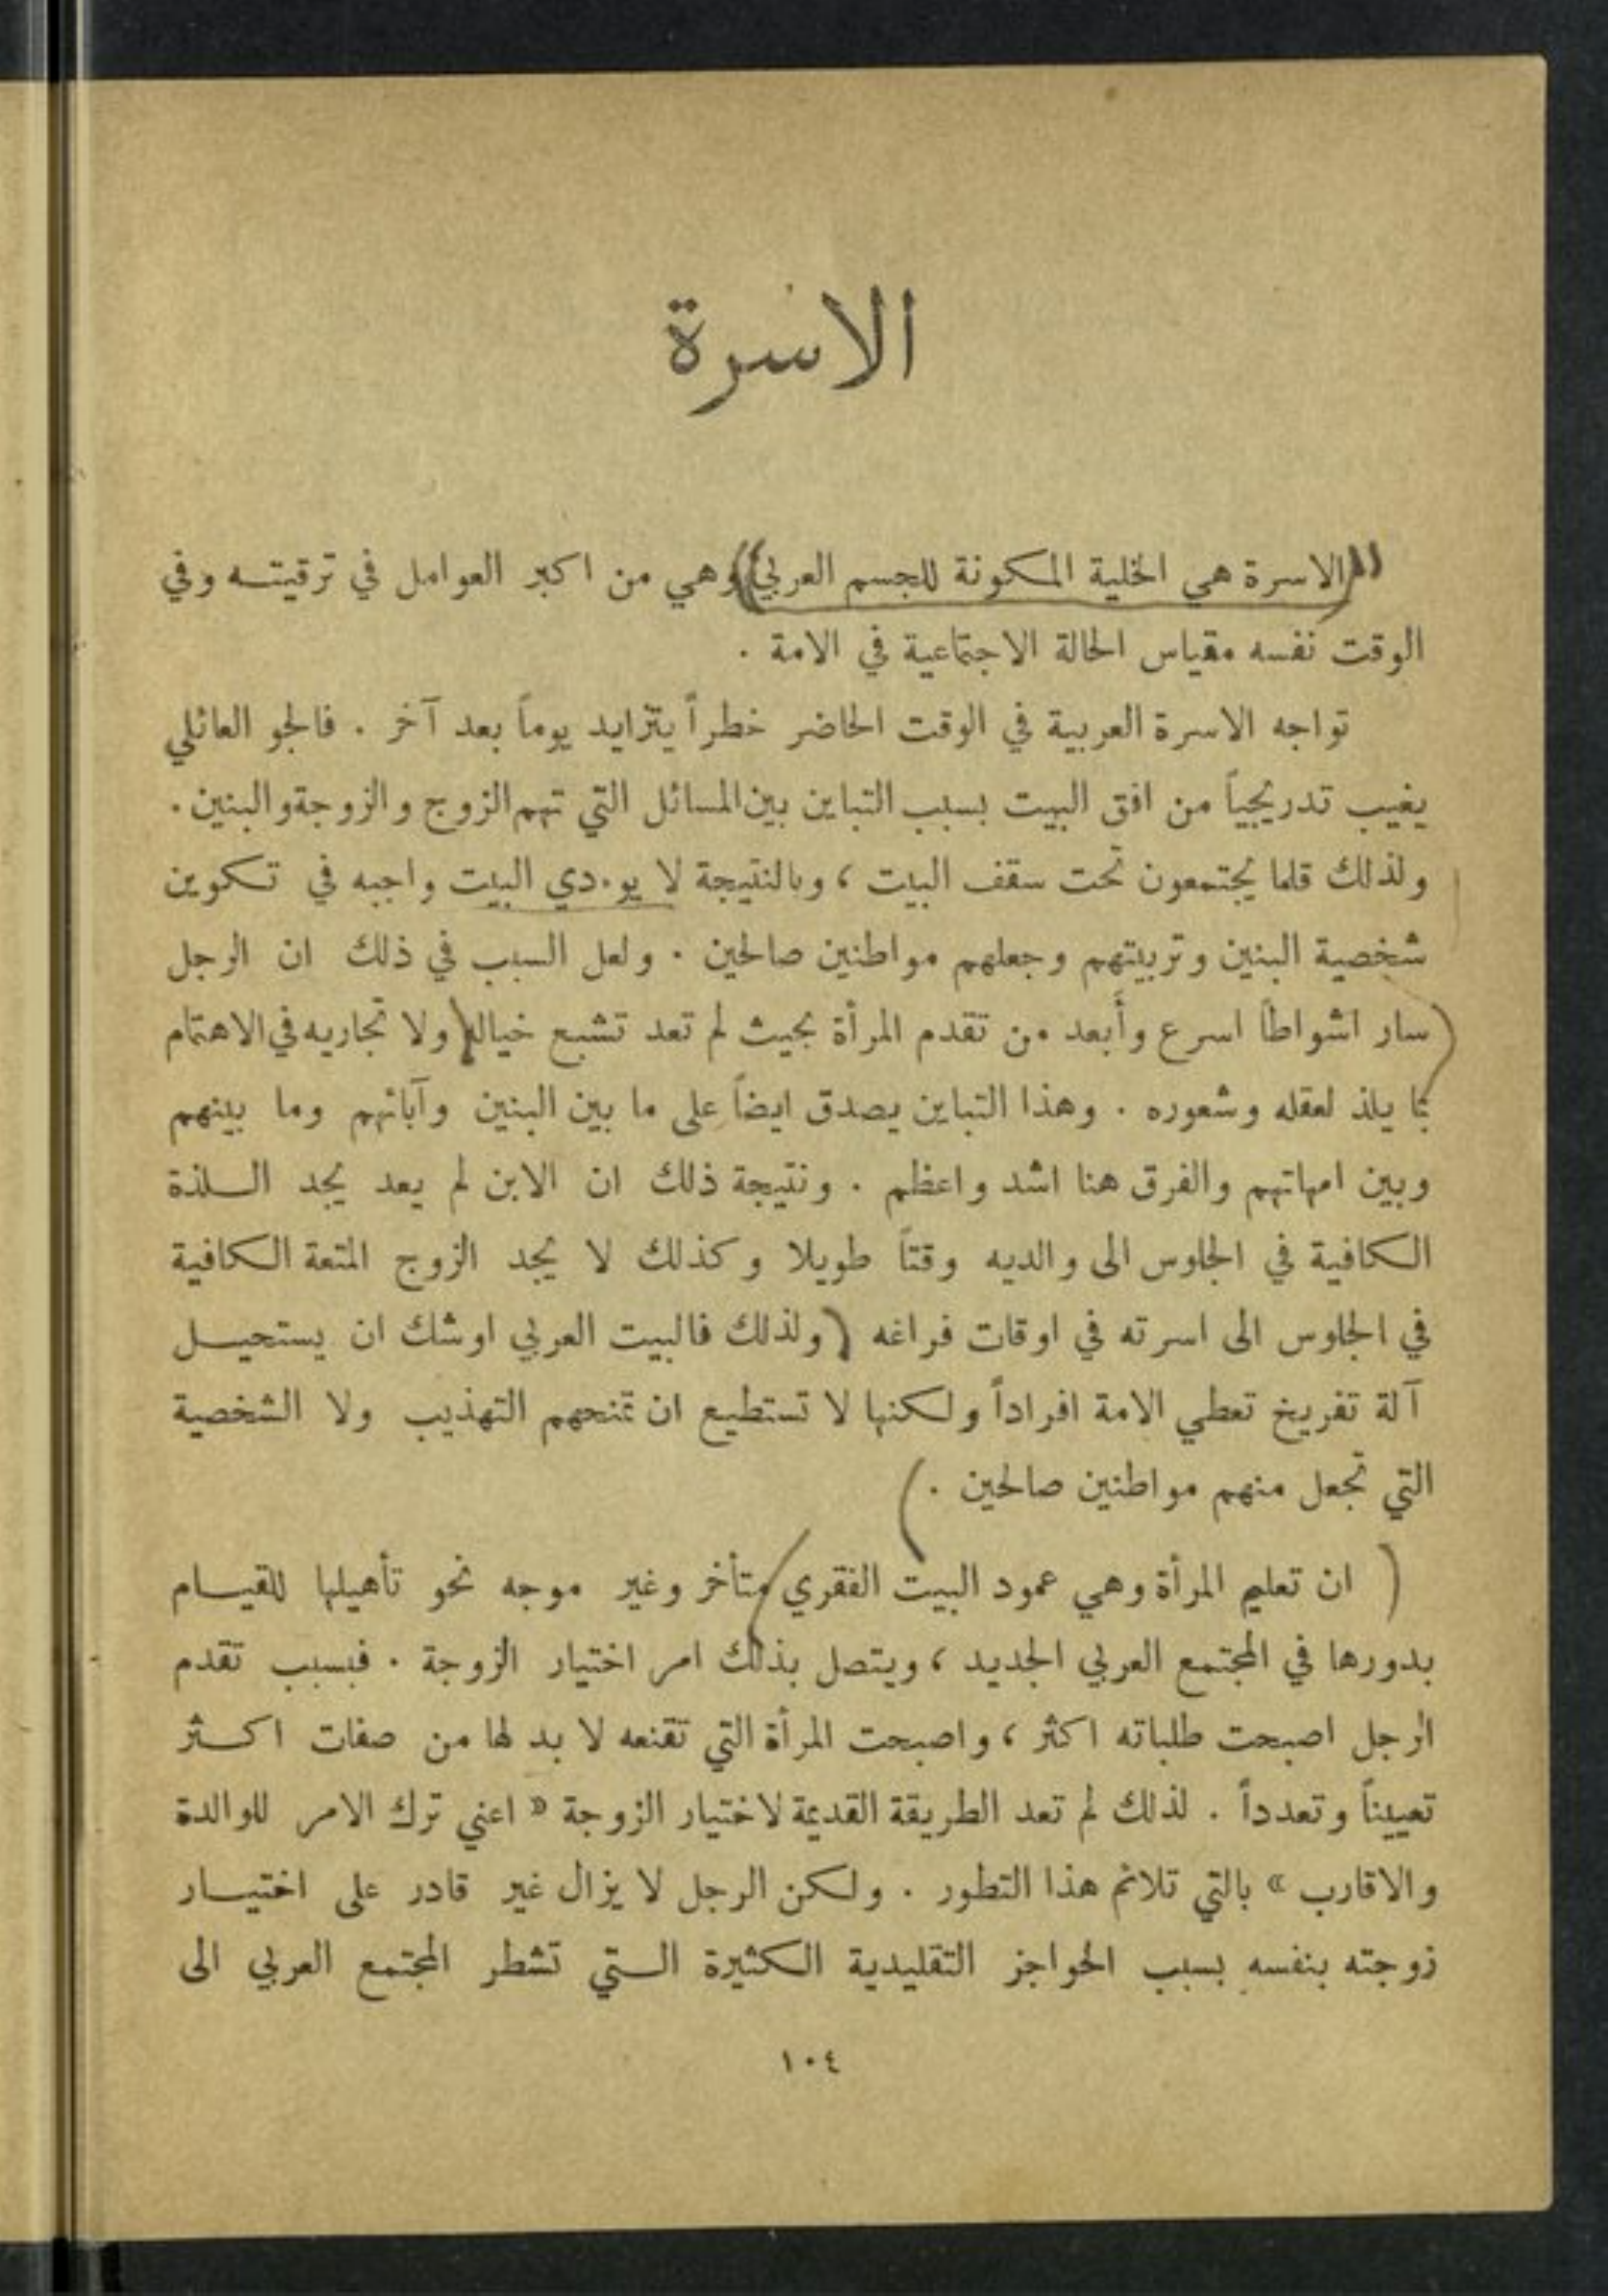 الاسرة
الاسرة هي الخلية المكونة للجسم العربي وهي من اكبر العوامل في ترقيته وفي
الوقت نفسه مقياس الحالة الاجتماعية في الامة .
تواجه الاسرة العربية في الوقت الحاضر خطراً يتزايد يوماً بعد آخر . فالجو العائلي
يغيب تدريجياً من افق البيت بسبب التباين بين المسائل التي تهم الزوج والزوجة والبنين .
ولذلك قلما يجتمعون تحت سقف البيت ، وبالنتيجة لا يؤدي البيت واجبه في تكوين
شخصية البنين وتربيتهم وجعلهم مواطنين صالحين . ولعل السبب في ذلك ان الرجل
سار اشواطاً اسرع وأبعد من تقدم المرأة بحيث لم تعد تشبع خياله ولا تجاريه في الاهتمام
بما يلذ لعقله وشعوره . وهذا التباين يصدق ايضاً على ما بين البنين وآبائهم وما بينهم
وبين امهاتهم والفرق هنا اشد واعظم . ونتيجة ذلك ان الابن لم يعد يجد اللذة
الكافية في الجلوس الى والديه وقتاً طويلا وكذلك لا يجد الزوج المتعة الكافية
في الجلوس الى اسرته في اوقات فراغه ( ولذلك فالبيت العربي اوشك ان يستحيل
آلة تفريخ تعطي الامة افراداً ولكنها لا تستطيع ان تمنحهم التهذيب ولا الشخصية
التي تجعل منهم مواطنين صالحين . )
( ان تعليم المرأة وهي عمود البيت الفقري متأخر وغير موجه نحو تأهيلها للقيام
بدورها في المجتمع العربي الجديد ، ويتصل بذلك امر اختيار الزوجة . فبسبب تقدم
الرجل اصبحت طلباته اكثر ، واصبحت المرأة التي تقنعه لا بد لها من صفات اكثر
تعييناً وتعدداً . لذلك لم تعد الطريقة القديمة لاختيار الزوجة « اعني ترك الامر للوالدة
والاقارب » بالتي تلائم هذا التطور . ولكن الرجل لا يزال غير قادر على اختيار
زوجته بنفسه بسبب الحواجز التقليدية الكثيرة التي تشطر المجتمع العربي الى
١٠٤